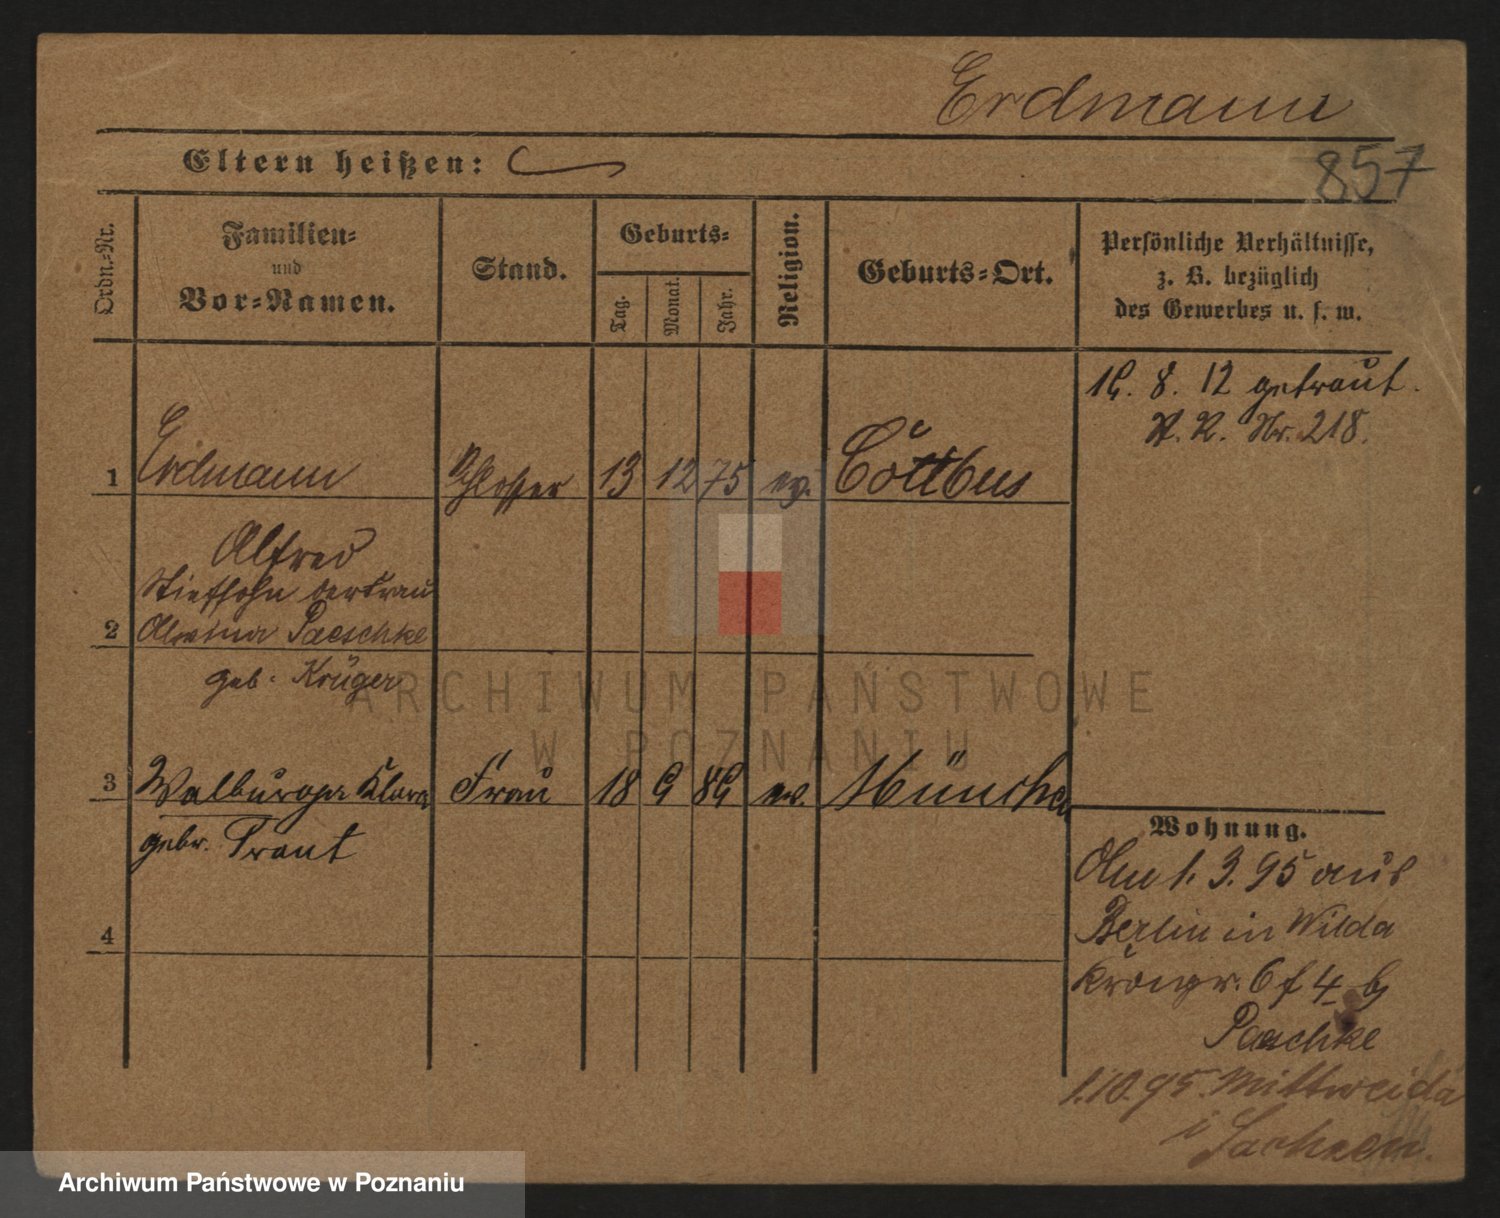 Erdmann
Eltern heißen:
857
Ordn.-Nr.
Familien-
und
Vor-Namen.
Stand.
Geburts-
Tag.
Monat.
Jahr.
Religion.
Geburts-Ort.
Persönliche Verhältnisse,
z. B. bezüglich
des Gewerbes u. s. w.
8. 12 getraut.
Nr. 218.
1 Erdmann Schlosser 13 12 75 ev. Cottbus
Alfred
Stiefsohn der Frau
2 Alwina Paeschke
geb. Krüger
3 Walburga Klara Frau 18 89 ev. München
gebr. Traut
4
Wohnung.
Am 1. 3. 95 aus
Berlin in Wilda
Krongr. 6 f 4 b
Paeschke
1.10.95. Mittweida
i Sachsen.
ARCHIWUM PAŃSTWOWE
W POZNANIU
Archiwum Państwowe w Poznaniu